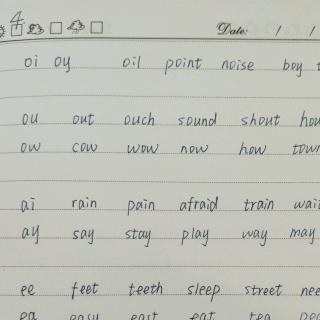 4
Date: / /
oi oy oil point noise boy
ou out ouch sound shout
ow cow wow now how town
ai rain pain afraid train
ay say stay play way may
ee feet teeth sleep street
ea easy east eat tea